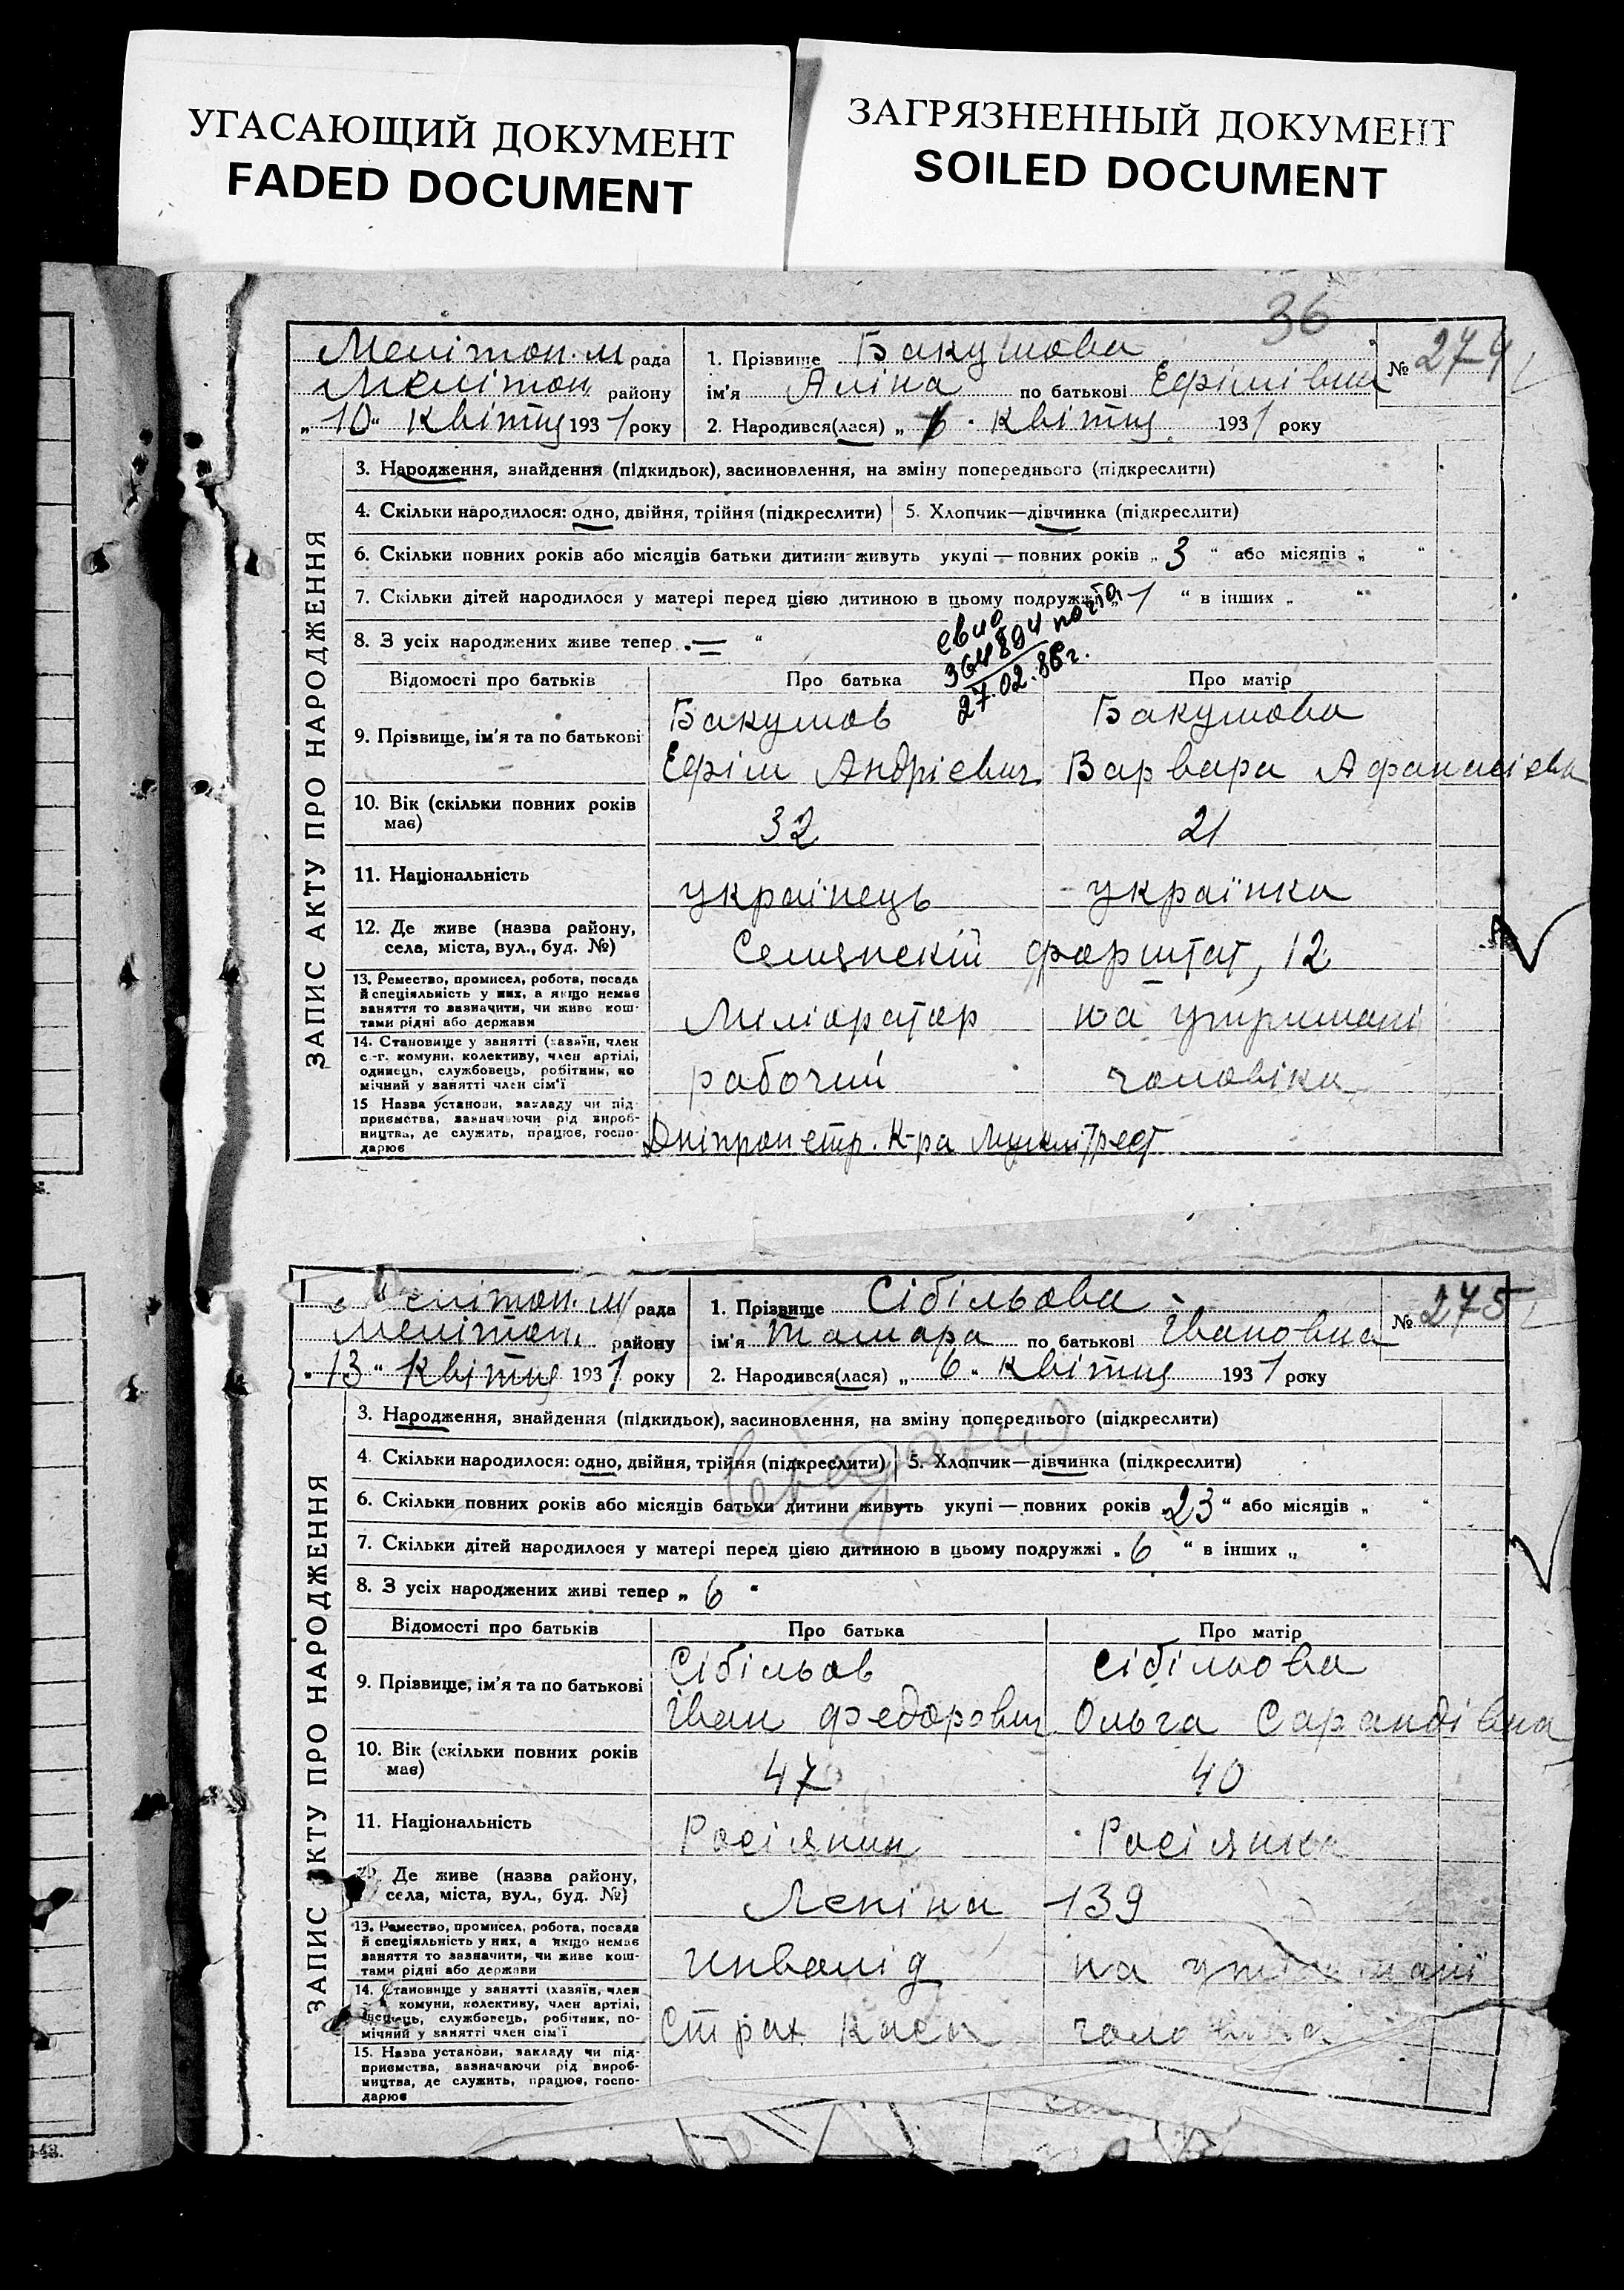 УГАСАЮЩИЙ ДОКУМЕНТ
FADED DOCUMENT
ЗАГРЯЗНЕННЫЙ ДОКУМЕНТ
SOILED DOCUMENT
36
Мелітоп. м рада
Мелітоп. району
„10“ Квітня 1931 року
1. Прізвище Бакумова
ім'я Аліна по батькові Ефімівна
№ 274
2. Народився(лася) „6“ Квітня 1931 року
ЗАПИС АКТУ ПРО НАРОДЖЕННЯ
3. Народження, знайдення (підкидьок), засиновлення, на зміну попереднього (підкреслити)
4. Скільки народилося: одно, двійня, трійня (підкреслити) 5. Хлопчик—дівчинка (підкреслити)
6. Скільки повних років або місяців батьки дитини живуть укупі — повних років „3“ або місяців „ “
7. Скільки дітей народилося у матері перед цією дитиною в цьому подружжі „1“ в інших „ “
8. З усіх народжених живе тепер „=“
свид
364894 почта
27.02.86г.
Відомості про батьків Про батька Про матір
9. Прізвище, ім'я та по батькові
Бакумов
Ефім Андрієвич
Бакумова
Варвара Афанасієва
10. Вік (скільки повних років має)
32 21
11. Національність
українець українка
12. Де живе (назва району, села, міста, вул., буд. №)
Семянскій форштат, 12
13. Ремество, промисел, робота, посада
й спеціяльність у них, а якщо немає
заняття то зазначити, чи живе кош-
тами рідні або держави
Міліоратор на утримані
14. Становище у занятті (хазяїн, член
с.-г. комуни, колективу, член артілі,
одинець, службовець, робітник, по
мічний у занятті член сім'ї
рабочий чоловіка
15 Назва установи, закладу чи під-
приємства, зазначаючи рід вироб-
ництва, де служить, працює, госпо-
дарює
Дніпропетр. К-ра
Мелітоп. м рада
Мелітоп. району
„13“ Квітня 1931 року
1. Прізвище Сібільова
ім'я Тамара по батькові Івановна
№ 275
2. Народився(лася) „6“ Квітня 1931 року
ЗАПИС АКТУ ПРО НАРОДЖЕННЯ
3. Народження, знайдення (підкидьок), засиновлення, на зміну попереднього (підкреслити)
4. Скільки народилося: одно, двійня, трійня (підкреслити) 5. Хлопчик—дівчинка (підкреслити)
6. Скільки повних років або місяців батьки дитини живуть укупі — повних років „23“ або місяців „ “
7. Скільки дітей народилося у матері перед цією дитиною в цьому подружжі „6“ в інших „ “
8. З усіх народжених живі тепер „6“
Відомості про батьків Про батька Про матір
9. Прізвище, ім'я та по батькові
Сібільов
Іван Федорович
Сібільова
Ольга Сарандівна
10. Вік (скільки повних років має)
47 40
11. Національність
Росіянин Росіянка
Де живе (назва району, села, міста, вул., буд. №)
Леніна 139
13. Ремество, промисел, робота, посада
й спеціяльність у них, а якщо немає
заняття то зазначити, чи живе кош-
тами рідні або держави
Инвалід на утримані
14. Становище у занятті (хазяїн, член
комуни, колективу, член артілі,
одинець, службовець, робітник, по-
мічний у занятті член сім'ї
Страх. Каса чоловіка
15. Назва установи, закладу чи під-
приємства, зазначаючи рід вироб-
ництва, де служить, працює, госпо-
дарює